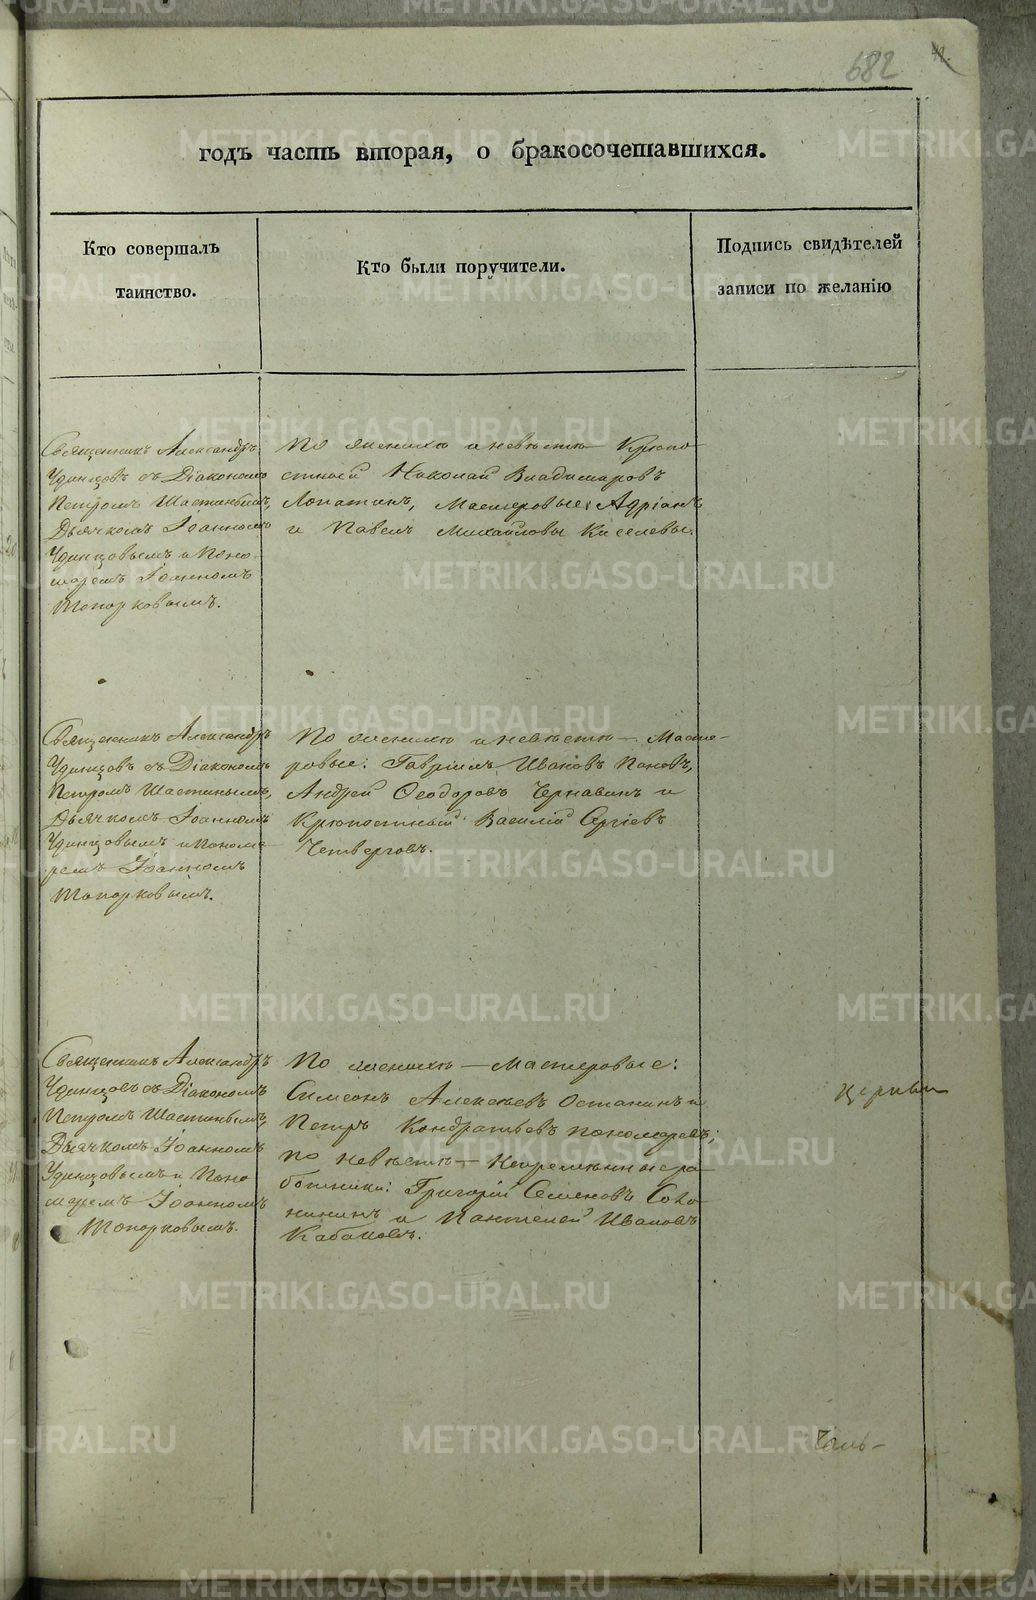 682
годъ часть вторая, о бракосочетавшихся.
Кто совершалъ
таинство.
Кто были поручители.
Подпись свидѣтелей
записи по желанію
Священникъ Александръ
Удинцовъ съ Діакономъ
Петромъ Шастинымъ,
Дьячкомъ Іоанномъ
Удинцовымъ и Поно
маремъ Іоанномъ
Топорковымъ.
По женихѣ и невѣстѣ Крѣпо
стной Николай Владимировъ
Лопатинъ, Мастеровые: Адріанъ
и Павелъ Михайловы Киселевы.
Священникъ Александръ
Удинцовъ съ Діакономъ
Петромъ Шастинымъ,
Дьячкомъ Іоанномъ
Удинцовымъ и Понома-
ремъ Іоанномъ
Топорковымъ.
По женихѣ и невѣстѣ — Масте-
ровые: Гавріилъ Ивановъ Пановъ,
Андрей Ѳеодоровъ Чернавинъ и
Крѣпостный Василій Сергіевъ
Четверговъ.
Священникъ Александръ
Удинцовъ съ Діакономъ
Петромъ Шастинымъ,
Дьячкомъ Іоанномъ
Удинцовымъ и Поно
маремъ Іоанномъ
Топорковымъ.
По женихѣ — Мастеровые:
Симеонъ Алексѣевъ Останинъ и
Петръ Кондратьевъ Пономаревъ;
по невѣстѣ — Непремѣнные ра
ботники: Григорій Семеновъ
и Пантелей Ивановъ
Кабаковъ.
Церкви
METRIKI.GASO-URAL.RU